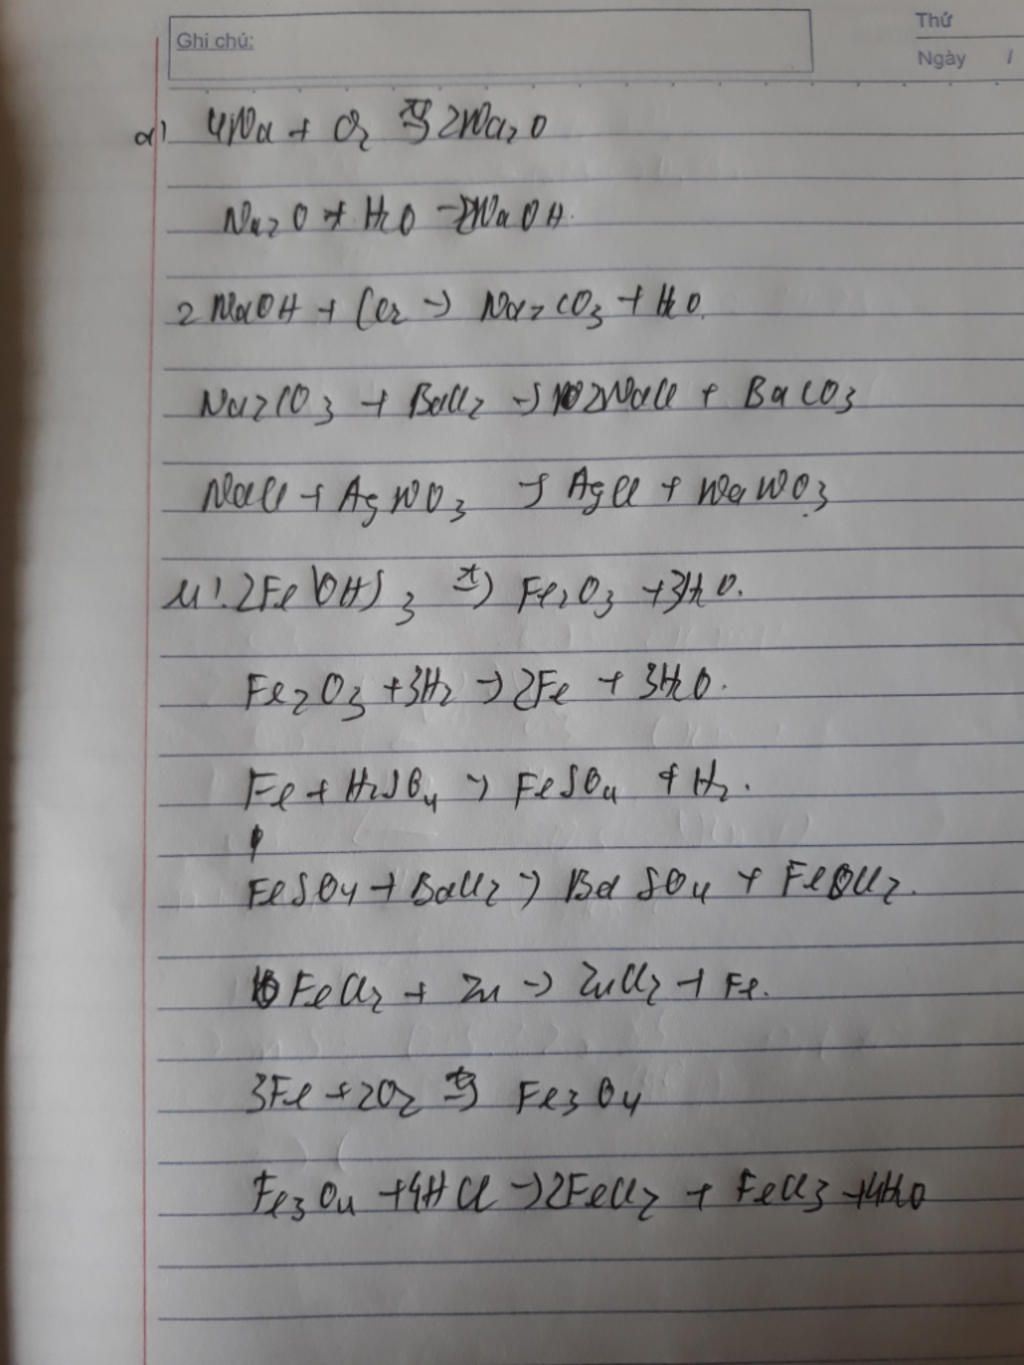 Ghi chú:
Thứ
Ngày /
a) 4Na + O2 t°→ 2Na2O
Na2O + H2O → 2NaOH.
2NaOH + CO2 → Na2CO3 + H2O.
Na2CO3 + BaCl2 → 2NaCl + BaCO3
NaCl + AgNO3 → AgCl + NaNO3
2Fe(OH)3 t°→ Fe2O3 + 3H2O.
Fe2O3 + 3H2 → 2Fe + 3H2O.
Fe + H2SO4 → FeSO4 + H2.
FeSO4 + BaCl2 → BaSO4 + FeCl2.
FeCl2 + Zn → ZnCl2 + Fe.
3Fe + 2O2 t°→ Fe3O4
Fe3O4 + 4HCl → 2FeCl2 + FeCl3 + 4H2O